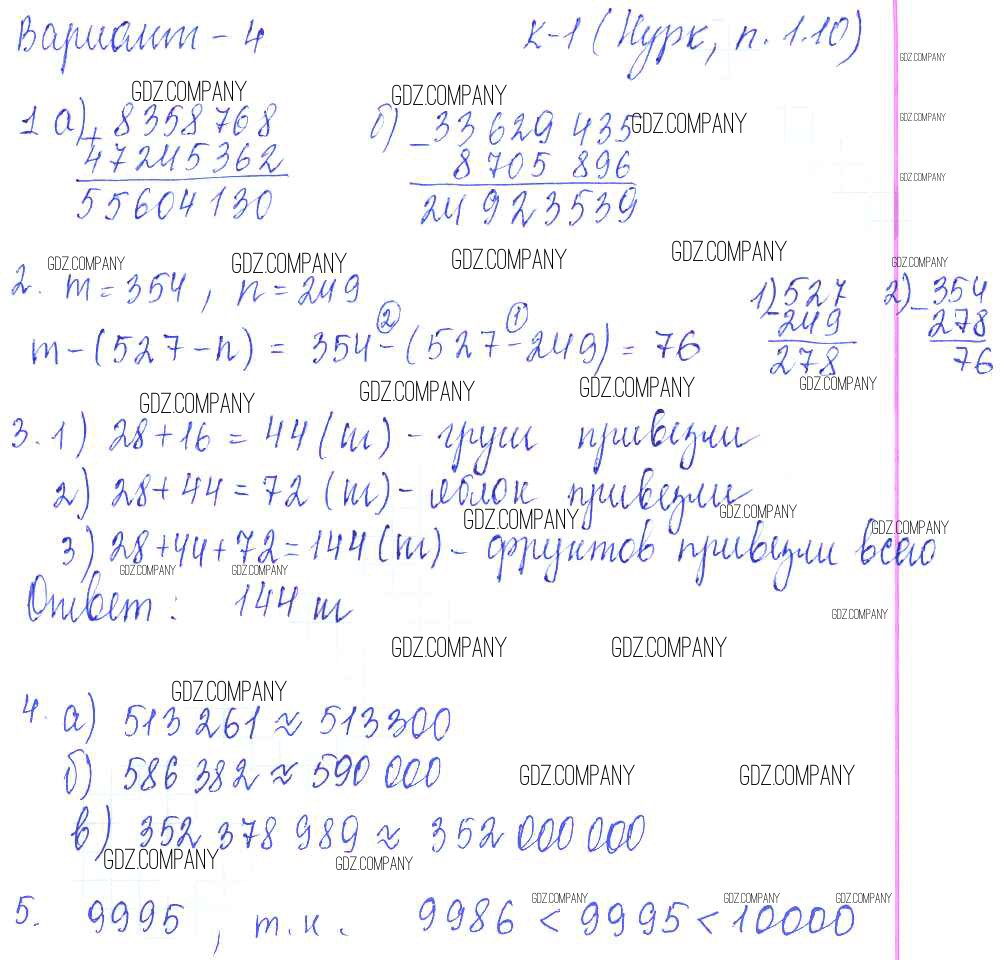 Вариант - 4 К-1 (Нурк, п. 1.10)
GDZ.COMPANY
GDZ.COMPANY GDZ.COMPANY
1 а) + 8358768 б) - 33 629 435 GDZ.COMPANY GDZ.COMPANY
47245362 8 705 896 GDZ.COMPANY
55604130 24 923539
GDZ.COMPANY GDZ.COMPANY GDZ.COMPANY GDZ.COMPANY GDZ.COMPANY
2. m = 354, n = 249 1) - 527 2) - 354
249 278
m - (527 - n) = 354 - (527 - 249) = 76 278 76
2 1
GDZ.COMPANY GDZ.COMPANY GDZ.COMPANY GDZ.COMPANY
3. 1) 28 + 16 = 44 (ш) - груш привезли
2) 28 + 44 = 72 (ш) - яблок привезли
GDZ.COMPANY GDZ.COMPANY GDZ.COMPANY
3) 28 + 44 + 72 = 144 (ш) - фруктов привезли всего
GDZ.COMPANY GDZ.COMPANY
Ответ: 144 ш GDZ.COMPANY
GDZ.COMPANY GDZ.COMPANY
GDZ.COMPANY
4. а) 513 261 ≈ 513300
б) 586 382 ≈ 590 000 GDZ.COMPANY GDZ.COMPANY
в) 352 378 989 ≈ 352 000 000
GDZ.COMPANY GDZ.COMPANY
GDZ.COMPANY GDZ.COMPANY GDZ.COMPANY
5. 9995, т.к. 9986 < 9995 < 10000